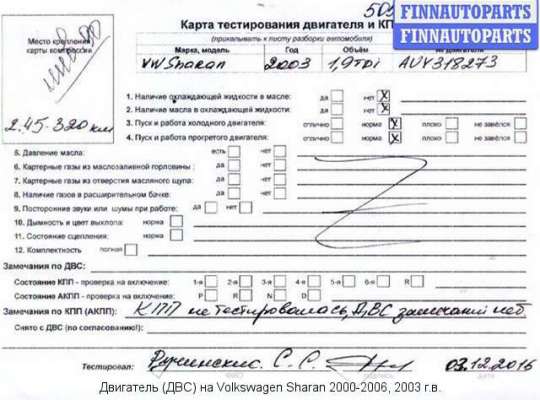 509
FINNAUTOPARTS
FINNAUTOPARTS
Карта тестирования двигателя и КП
(прикалывать к листу разборки автомобиля)
Место крепления карты компрессии
Марка, модель Год Объём № двигателя
VW Sharan 2003 1,9TDi AUY318273
2.45.320 км
1. Наличие охлаждающей жидкости в масле: да нет X
2. Наличие масла в охлаждающей жидкости: да нет X
3. Пуск и работа холодного двигателя: отлично норма X плохо не завёлся
4. Пуск и работа прогретого двигателя: отлично норма X плохо не завёлся
5. Давление масла: есть нет
6. Картерные газы из маслозаливной горловины: да нет
7. Картерные газы из отверстия масляного щупа: да нет
8. Наличие газов в расширительном бачке: да нет
9. Посторонние звуки или шумы при работе: да нет
10. Дымность и цвет выхлопа: норма
11. Состояние сцепления: норма
12. Комплектность полная
Замечания по ДВС:
Состояние КПП - проверка на включение: 1-я 2-я 3-я 4-я 5-я 6-я R
Состояние АКПП - проверка на включение: P R N D
Замечания по КПП (АКПП): КПП не тестировалась, ДВС замечаний нет
Снято с ДВС (по согласованию!):
Тестировал: Ручинский С.С. 03.12.2016
Двигатель (ДВС) на Volkswagen Sharan 2000-2006, 2003 г.в.